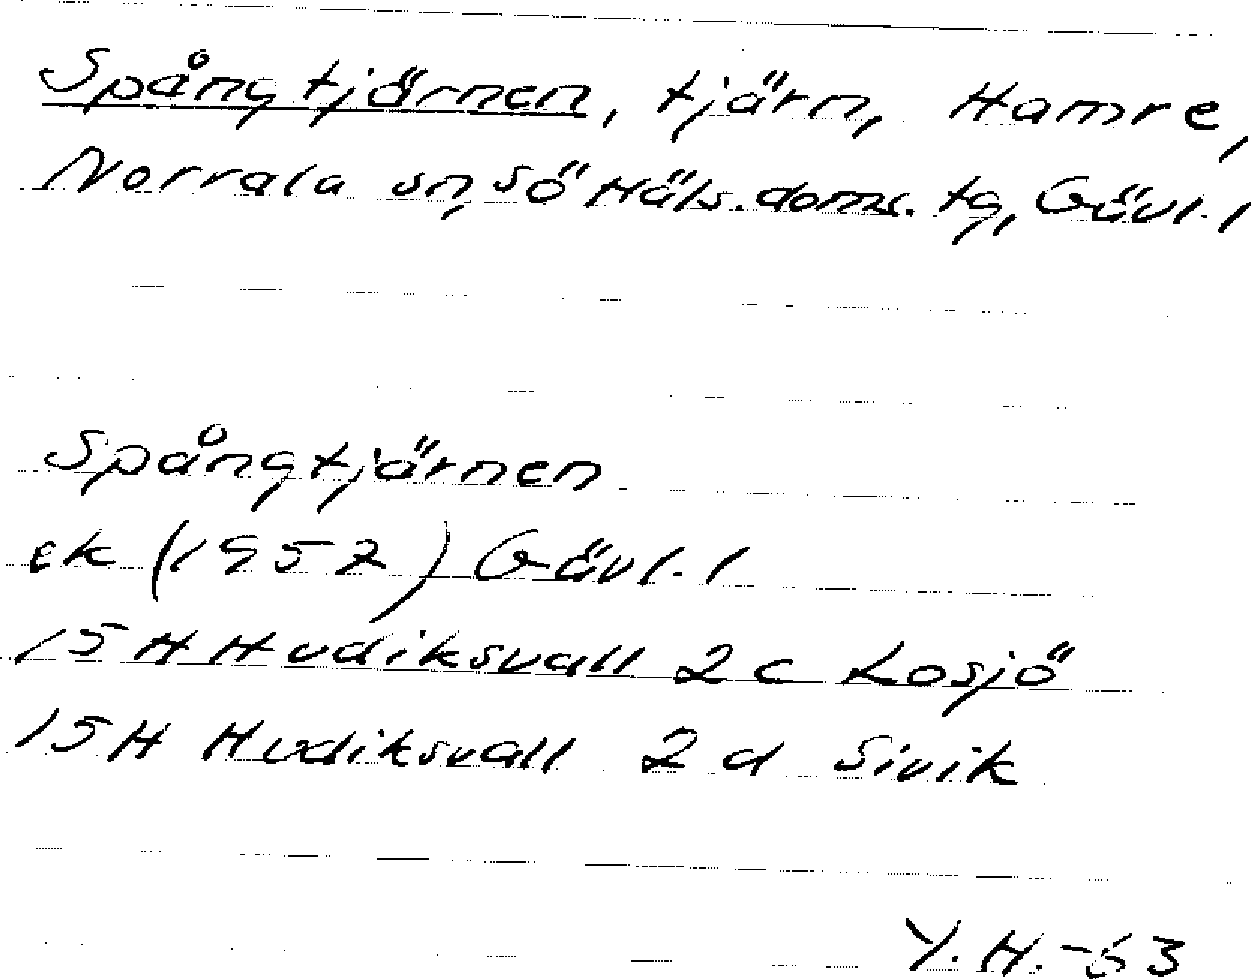 Spångtjärnen, tjärn, Hamre,
Norrala sn, Sö Häls. doms. tg, Gävl. l
Spångtjärnen
ek (1952) Gävl. l
15 H Hudiksvall 2 c Losjö
15 H Hudiksvall 2 d Sivik
Y. H. -63